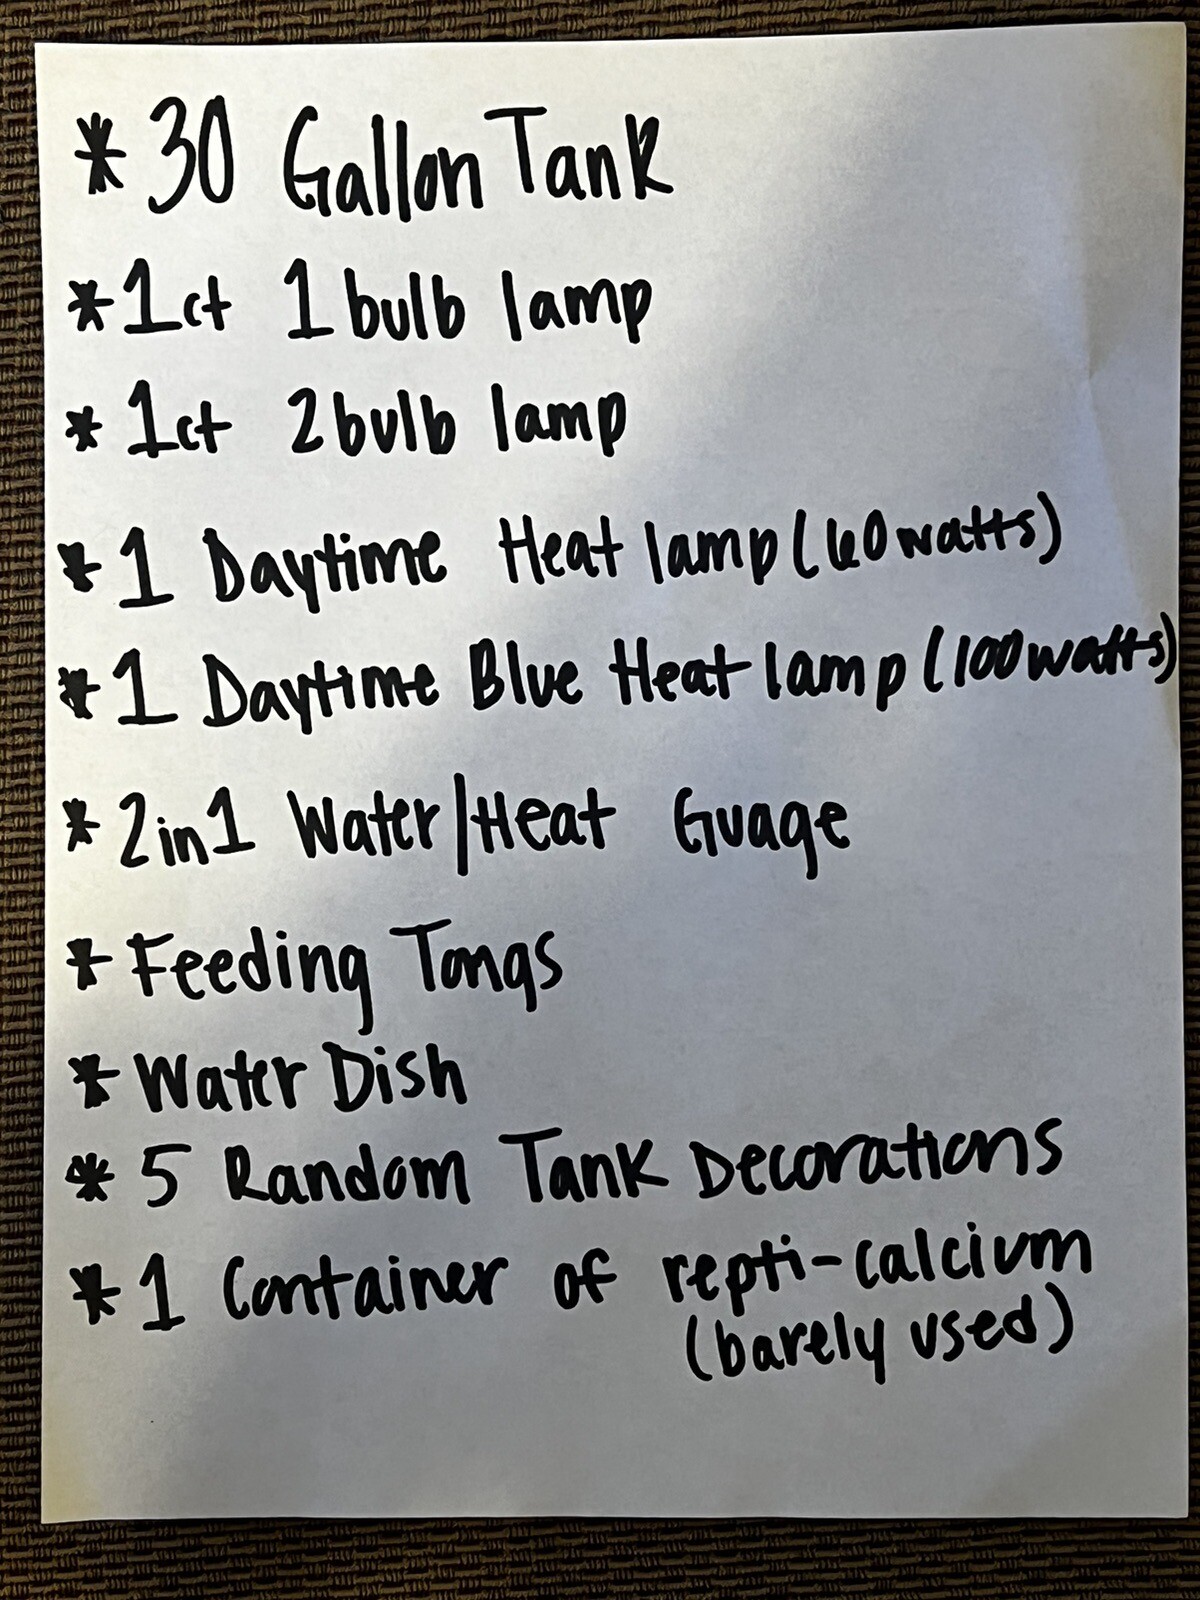 * 30 Gallon Tank
* 1ct 1 bulb lamp
* 1ct 2 bulb lamp
* 1 Daytime Heat lamp (60watts)
* 1 Daytime Blue Heat lamp (100watts)
* 2in1 Water/Heat Guage
* Feeding Tongs
* Water Dish
* 5 Random Tank Decorations
* 1 Container of repti-calcium
(barely used)